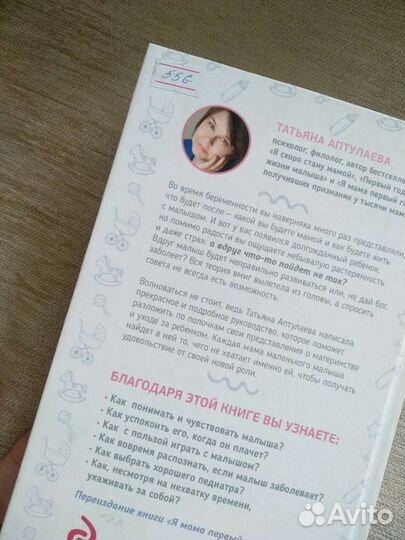 556-
ТАТЬЯНА АПТУЛАЕВА
психолог, филолог, автор бестселле
«Я скоро стану мамой», «Первый год
жизни малыша» и «Я мама первый г
получивших признание у тысячи мам
Во время беременности вы наверняка много раз представляли,
что будет после – какой вы будете мамой и как будете жить
с малышом. И вот у вас появился долгожданный ребенок,
но помимо радости вы ощущаете небывалую растерянность
и даже страх: а вдруг что-то пойдет не так?
Вдруг малыш будет неправильно развиваться или, не дай бог,
заболеет? Вся теория вмиг вылетела из головы, а спросить
совета не всегда есть возможность.
Волноваться не стоит, ведь Татьяна Аптулаева написала
прекрасное и подробное руководство, которое поможет
разложить по полочкам свои представления о материнстве
и уходе за ребенком. Каждая мама маленького малыша
найдет в ней то, чего не хватает именно ей, чтобы получать
удовольствие от своей новой роли.
БЛАГОДАРЯ ЭТОЙ КНИГЕ ВЫ УЗНАЕТЕ:
• Как понимать и чувствовать малыша?
• Как успокоить его, когда он плачет?
• Как с пользой играть с малышом?
• Как вовремя распознать, если малыш заболевает?
• Как выбрать хорошего педиатра?
• Как, несмотря на нехватку времени,
ухаживать за собой?
Переиздание книги «Я мама первый
Avito